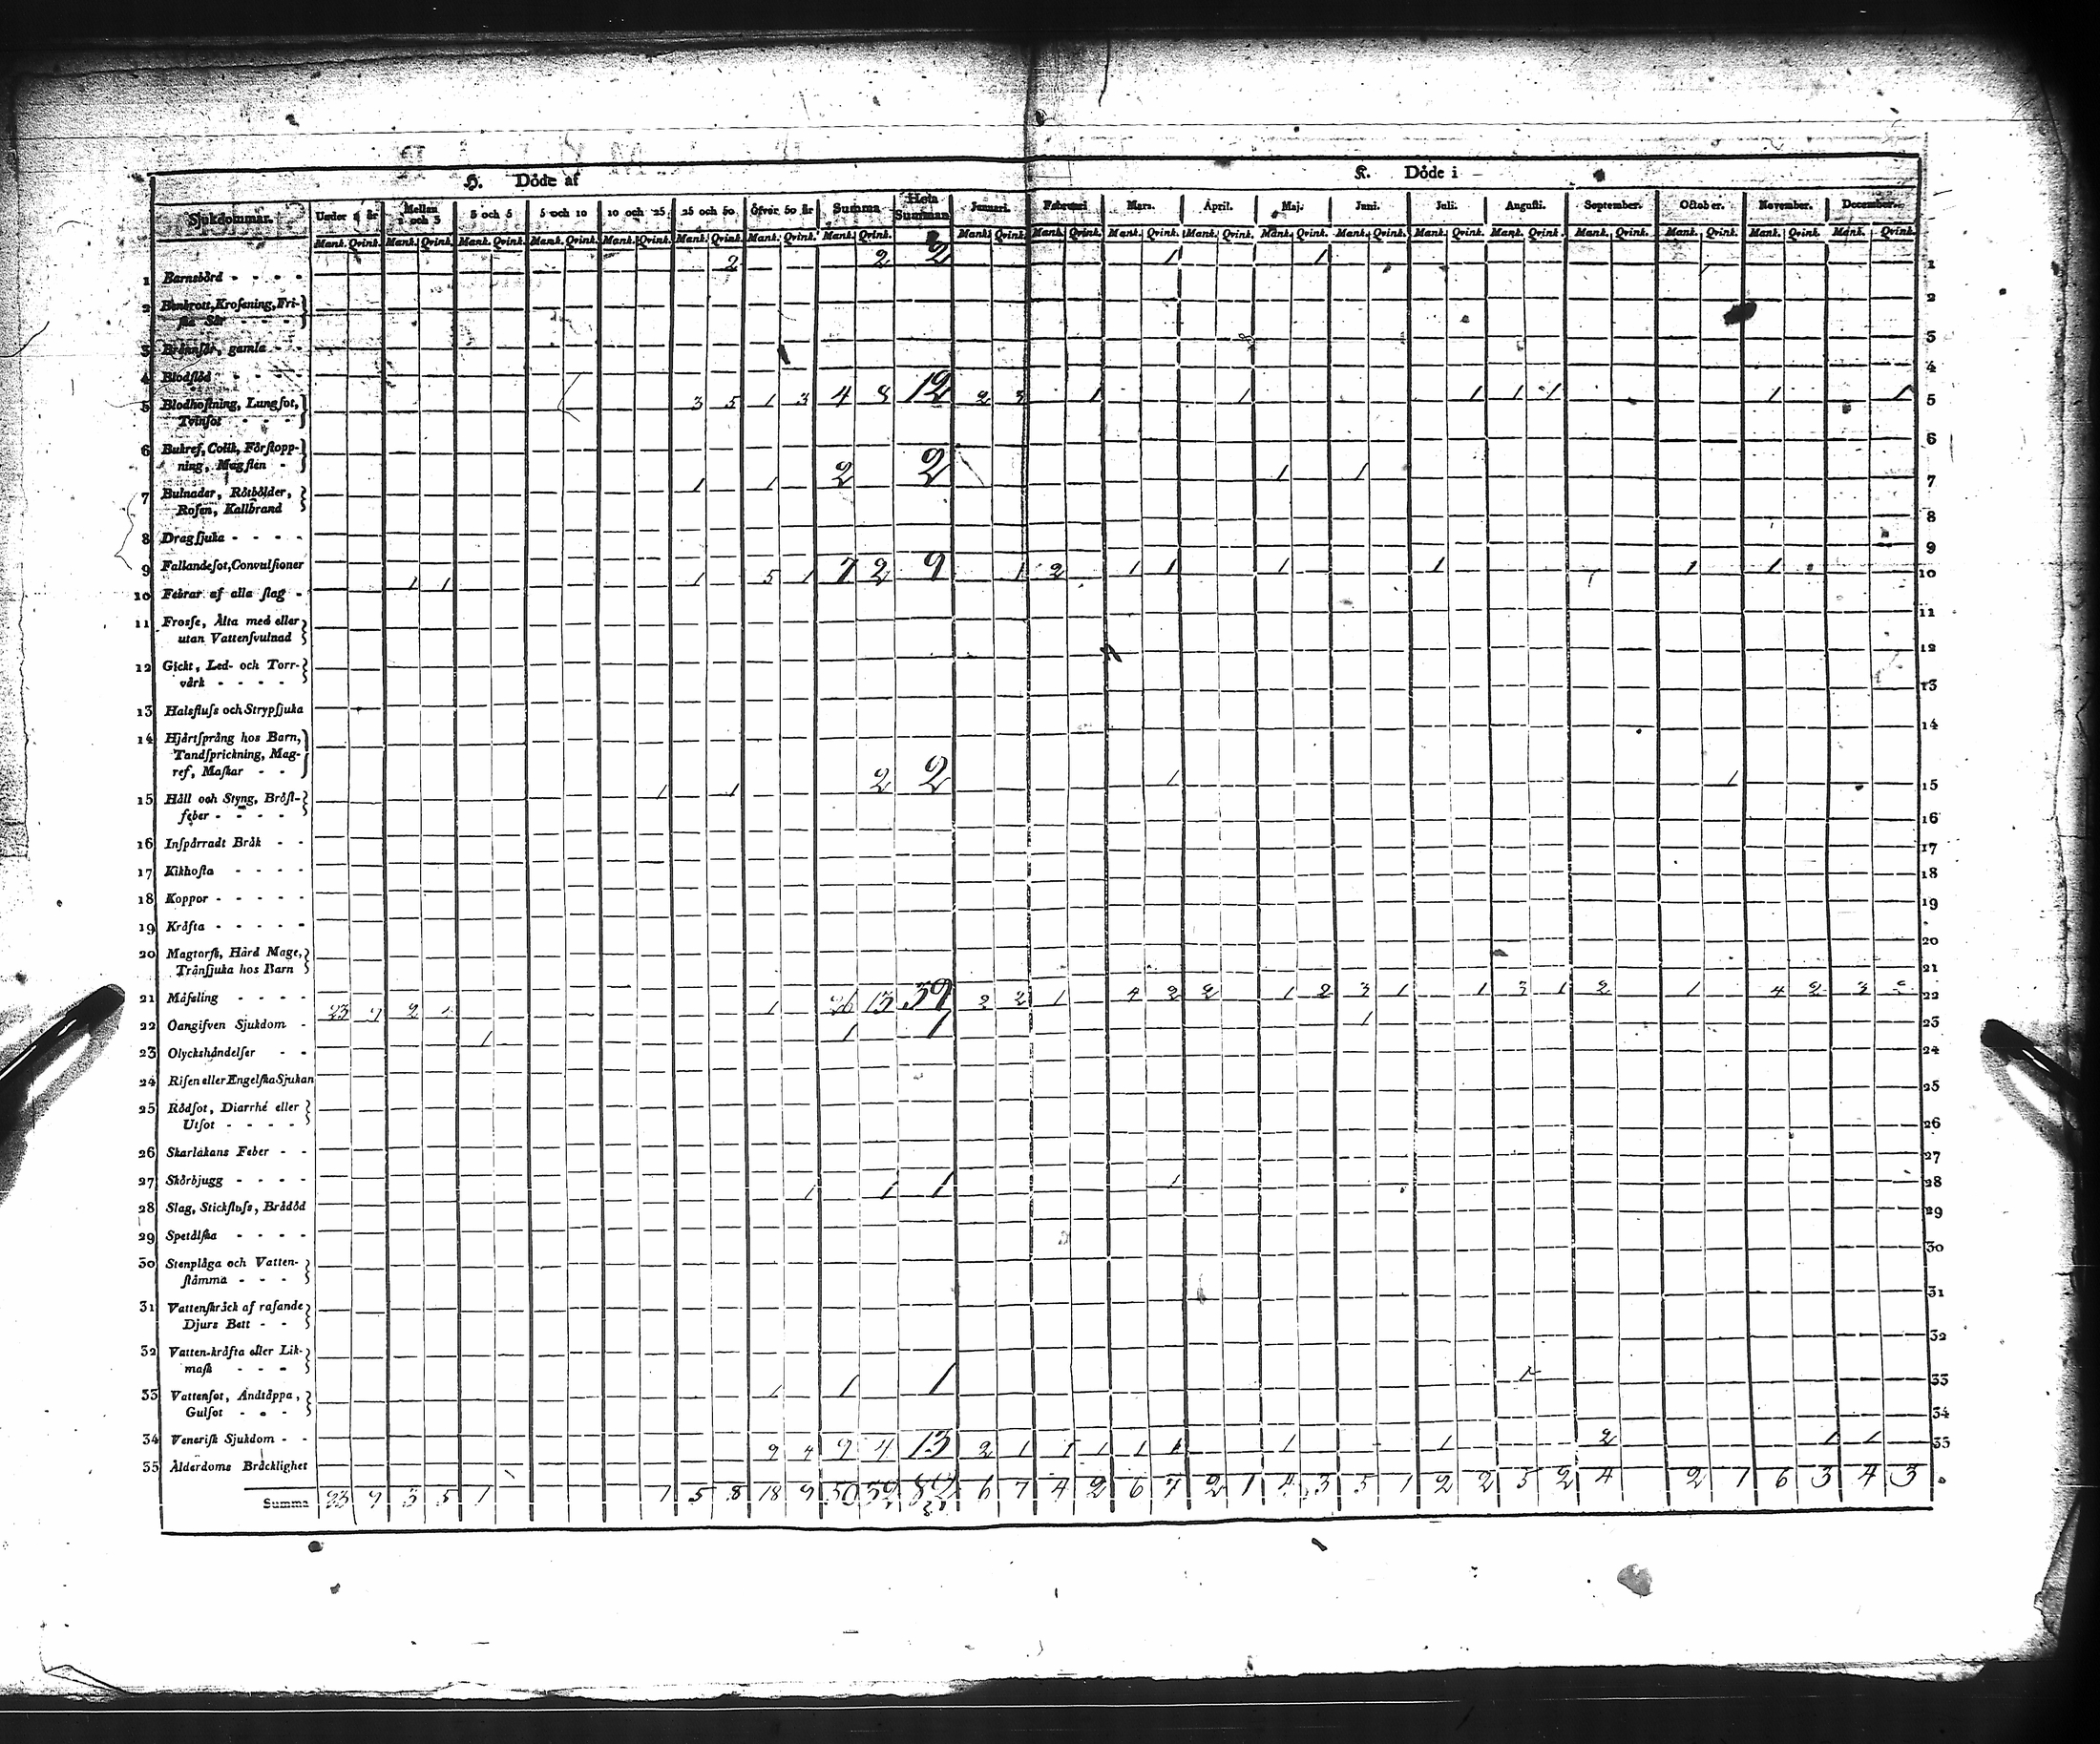 H. Döde af K. Döde i
Sjukdommar. Under 1 år Mellan 1 och 3 3 och 5 5 och 10 10 och 25 25 och 50 Öfver 50 år Summa Hela Summan Januari. Februari Mars. April. Maj. Juni. Juli. Augusti. September. October. November. December.
Mank. Qvink. Mank. Qvink. Mank. Qvink. Mank. Qvink. Mank. Qvink. Mank. Qvink. Mank. Qvink. Mank. Qvink. Mank. Qvink. Mank. Qvink. Mank. Qvink. Mank. Qvink. Mank. Qvink. Mank. Qvink. Mank. Qvink. Mank. Qvink. Mank. Qvink. Mank. Qvink. Mank. Qvink. Mank. Qvink.
1 Barnsbörd - - - - 2 2 2 1 1 1
2 Benbrott, Krossning, Fri-
ska Sår - - - 2
3 Brännsår, gamla - - 3
4 Blodflöd - - - - 4
5 Blodhostning, Lungsot, 3 5 1 3 4 8 12 2 3 1 1 1 1 1 1 1 5
Tvinsot - - -
6 Bukref, Colik, Förstopp- 6
ning, Magsten -
7 Bulnader, Rötbölder, 1 1 2 2 1 1 7
Rosen, Kallbrand
8 Dragsjuka - - - - 8
9 Fallandesot, Convulsioner 9
10 Febrar af alla slag - 1 1 1 5 1 7 2 9 1 2 1 1 1 1 1 1 10
11 Frosse, Älta med eller 11
utan Vattensvulnad
12 Gickt, Led- och Torr- 12
värk - - - -
13 Halsfluss och Strypsjuka 13
14 Hjärtsprång hos Barn, 14
Tandsprickning, Mag-
ref, Maskar - -
15 Håll och Styng, Bröst- 1 1 2 2 1 1 15
feber - - - -
16 Inspärradt Bråk - - 16
17 Kikhosta - - - - 17
18 Koppor - - - - - 18
19 Kräfta - - - - - 19
20 Magtorsk, Hård Mage, 20
Trånsjuka hos Barn
21 Mässling - - - - 21
22 Oangifven Sjukdom - 23 9 2 4 1 26 13 39 2 2 1 4 2 2 1 2 3 1 1 3 1 2 1 4 2 3 2 22
23 Olyckshändelser - - 1 1 1 1 23
24 Risen eller Engelska Sjukan 24
25 Rödsot, Diarrhé eller 25
Utsot - - - - -
26 Skarlakans Feber - - 26
27 Skörbjugg - - - - 27
28 Slag, Stickfluss, Bråddöd 1 1 1 1 28
29 Spetälska - - - - 29
30 Stenplåga och Vatten- 30
stämma - - -
31 Vattenskräck af rasande 31
Djurs Bett - -
32 Vatten-kräfta eller Lik- 32
mask - - -
33 Vattensot, Andtäppa, 1 1 1 1 33
Gulsot - - -
34 Venerisk Sjukdom - - 34
35 Ålderdoms Bräcklighet 9 4 9 4 13 2 1 1 1 1 1 1 1 2 1 1 35
Summa 23 9 3 5 1 1 5 8 18 9 50 32 82 6 7 4 2 6 7 2 1 4 3 5 1 2 2 5 2 4 2 1 6 3 4 3